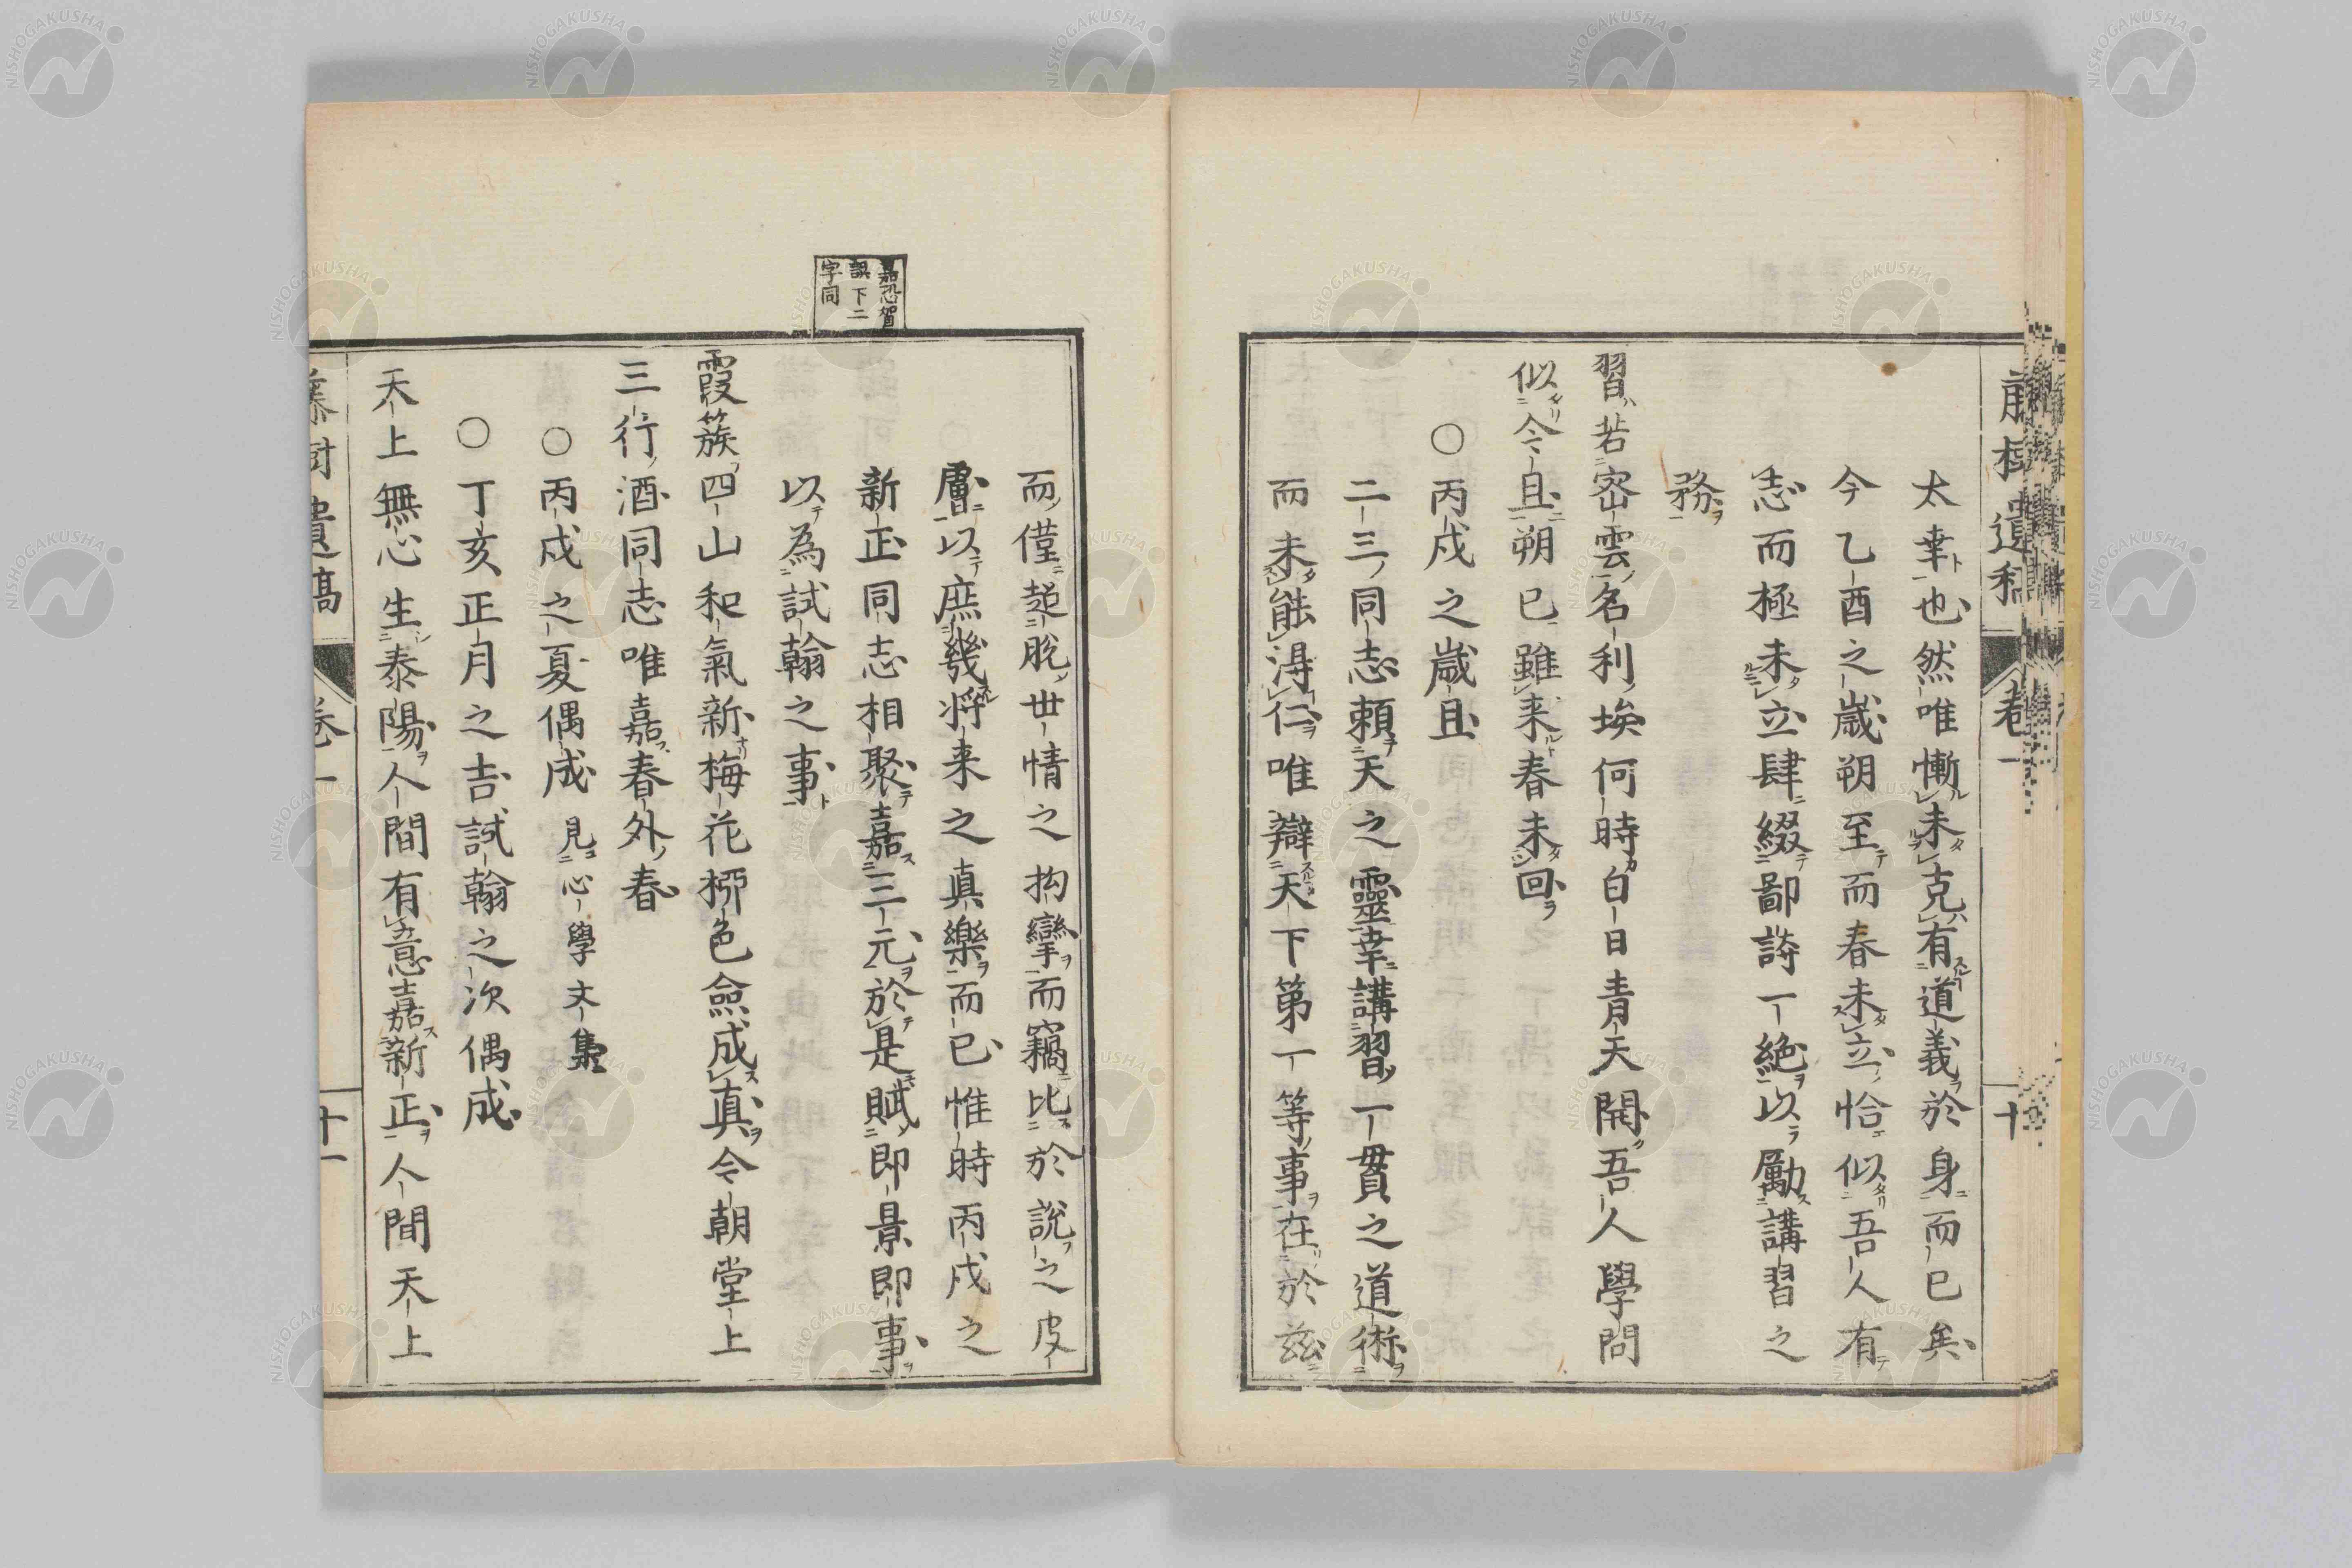 太幸也然唯慚未克有道義於身而已矣
今乙酉之歲朔至而春未立恰似吾人有
志而極未立肆綴鄙詩一絶以勵講習之
務
習若密雲名利埃何時白日青天開吾人學問
似今旦朔已雖来春未回
○丙戌之歲旦
二三同志頼天之靈幸講習一貫之道術
而未能得仁唯辯天下第一等事在於兹
而僅超脱世情之拘攣而竊比於説之皮
膚以庶幾将来之真樂而已惟時丙戌之
新正同志相聚嘉三元於是賦即景即事
以為試翰之事
嘉恐賀
誤下二
字同
霞簇四山和氣新梅花栁色僉成真今朝堂上
三行酒同志唯嘉春外春
○丙戌之夏偶成 見心學文集
○丁亥正月之吉試翰之次偶成
天上無心生泰陽人間有意嘉新正人間天上
藤樹遺稿 卷一 十一